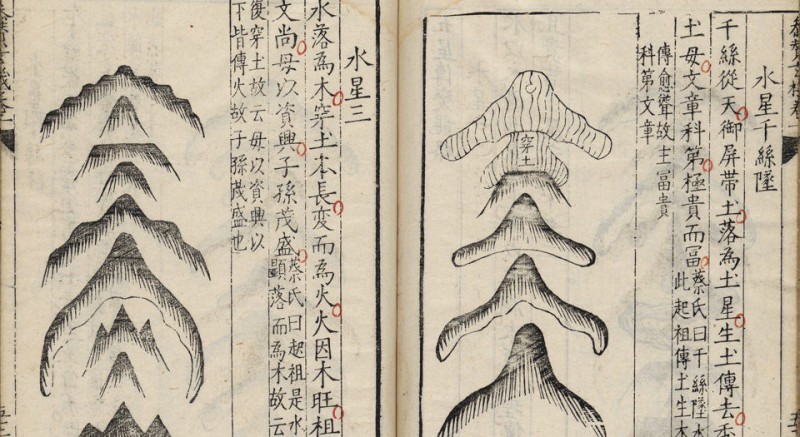 水星千絲墜
千絲從天御屏帶土落為土星生土傳去
土母文章科第極貴而冨
蔡氏曰千絲墜水
此起祖傳土生木
傳愈聳故主冨貴
科第文章
穿土
水星三
水落為木穿土木長変而為火火因木旺祖
文尚母以資興子孫茂盛
蔡氏曰起祖是水
顕落而為木故云
復穿土故云母以資興以
下皆傳火故子孫茂盛也